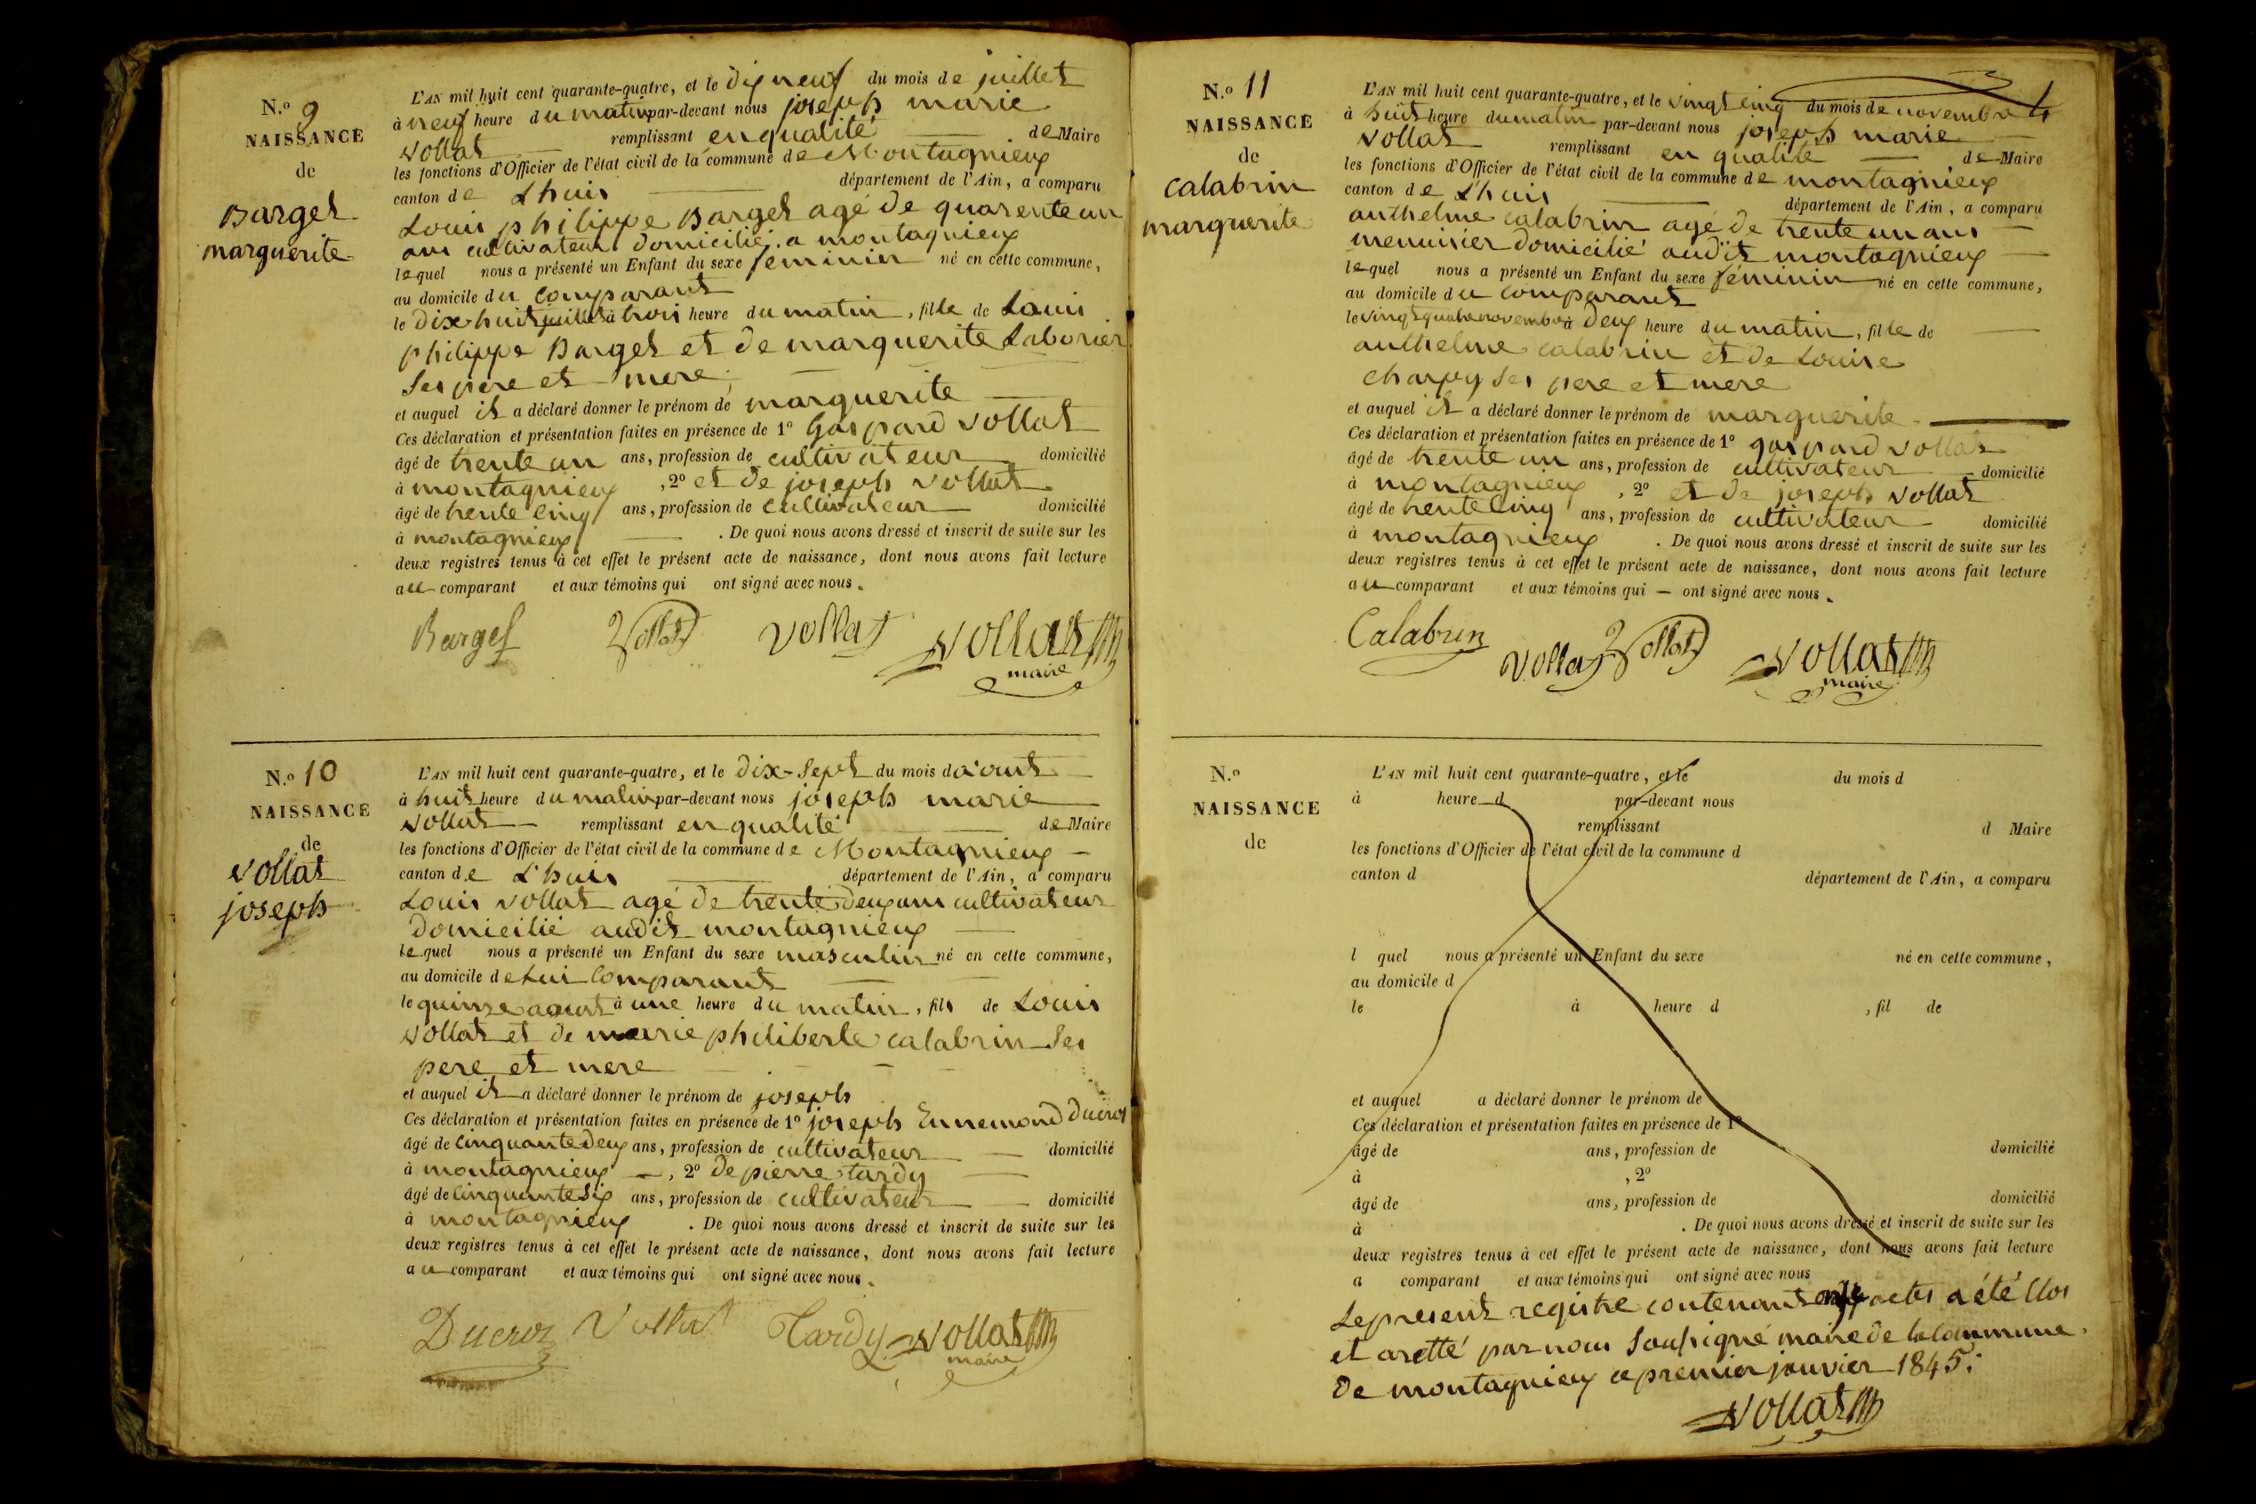 N.o 9
NAISSANCE
de
Barget
marguerite
L'AN mil huit cent quarante-quatre, et le dix neuf du mois de juillet
à neuf heure du matin par-devant nous joseph marie
vollat remplissant en qualité de Maire
les fonctions d'Officier de l'état civil de la commune de Montagnieux
canton de Lhuis département de l'Ain, a comparu
Louis philippe Barget agé de quarente un
ans cultivateur domicilié a montagnieux
lequel nous a présenté un Enfant du sexe féminin né en cette commune,
au domicile du comparant
le dix huit juillet à trois heure du matin, fille de Louis
philippe Barget et de marguerite Laborier
ses pere et mere
et auquel il a déclaré donner le prénom de marguerite
Ces déclaration et présentation faites en présence de 1o Gaspard vollat
âgé de trente un ans, profession de cultivateur domicilié
à montagnieux , 2o et de joseph vollat
âgé de trente cinq ans, profession de cultivateur domicilié
à montagnieux . De quoi nous avons dressé et inscrit de suite sur les
deux registres tenus à cet effet le présent acte de naissance, dont nous avons fait lecture
au comparant et aux témoins qui ont signé avec nous.
Barget Vollat vollat vollat
maire
N.o 10
NAISSANCE
de
vollat
joseph
L'AN mil huit cent quarante-quatre, et le dix-sept du mois d'aout
à huit heure du matin par-devant nous joseph marie
vollat remplissant en qualité de Maire
les fonctions d'Officier de l'état civil de la commune de Montagnieux
canton de Lhuis département de l'Ain, a comparu
Louis vollat agé de trente deux ans cultivateur
domicilié audit montagnieux
lequel nous a présenté un Enfant du sexe masculin né en cette commune,
au domicile de lui comparant
le quinze aout à une heure du matin, fils de Louis
vollat et de marie philiberte calabrin ses
pere et mere
et auquel il a déclaré donner le prénom de joseph
Ces déclaration et présentation faites en présence de 1o joseph Ennemond Ducros
âgé de cinquante deux ans, profession de cultivateur domicilié
à montagnieux , 2o de pierre tardy
âgé de cinquante six ans, profession de cultivateur domicilié
à montagnieux . De quoi nous avons dressé et inscrit de suite sur les
deux registres tenus à cet effet le présent acte de naissance, dont nous avons fait lecture
au comparant et aux témoins qui ont signé avec nous.
Ducroz Vollat Tardy vollat
maire
N.o 11
NAISSANCE
de
calabrin
marguerite
L'AN mil huit cent quarante-quatre, et le vingt cinq du mois de novembre
à huit heure du matin par-devant nous joseph marie
vollat remplissant en qualité de Maire
les fonctions d'Officier de l'état civil de la commune de montagnieux
canton de Lhuis département de l'Ain, a comparu
anthelme calabrin agé de trente un ans
menuisier domicilié audit montagnieux
lequel nous a présenté un Enfant du sexe féminin né en cette commune,
au domicile du comparant
le vingt quatre novembre à deux heure du matin, fille de
anthelme calabrin et de Louise
charpy ses pere et mere
et auquel il a déclaré donner le prénom de marguerite
Ces déclaration et présentation faites en présence de 1o gaspard vollat
âgé de trente un ans, profession de cultivateur domicilié
à montagnieux , 2o et de joseph vollat
âgé de trente cinq ans, profession de cultivateur domicilié
à montagnieux . De quoi nous avons dressé et inscrit de suite sur les
deux registres tenus à cet effet le présent acte de naissance, dont nous avons fait lecture
au comparant et aux témoins qui ont signé avec nous.
Calabrin vollat Vollat vollat
maire
N.o
NAISSANCE
de
L'AN mil huit cent quarante-quatre, et le du mois d
à heure d par-devant nous
remplissant d Maire
les fonctions d'Officier de l'état civil de la commune d
canton d département de l'Ain, a comparu
l quel nous a présenté un Enfant du sexe né en cette commune,
au domicile d
le à heure d , fil de
et auquel a déclaré donner le prénom de
Ces déclaration et présentation faites en présence de 1o
âgé de ans, profession de domicilié
à , 2o
âgé de ans, profession de domicilié
à . De quoi nous avons dressé et inscrit de suite sur les
deux registres tenus à cet effet le présent acte de naissance, dont nous avons fait lecture
a comparant et aux témoins qui ont signé avec nous
Le present registre contenant onze actes a été clos
et aretté par nous soussigné maire de la commune
de montagnieux ce premier janvier 1845.
vollat